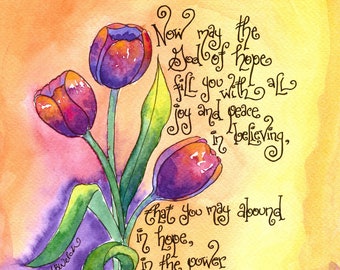 Now may the
God of hope
fill you with all
joy and peace
in believing,
that you may abound
in hope,
in the power